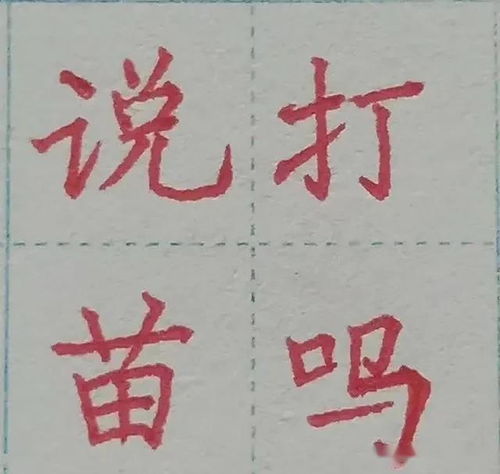 说打
苗吗